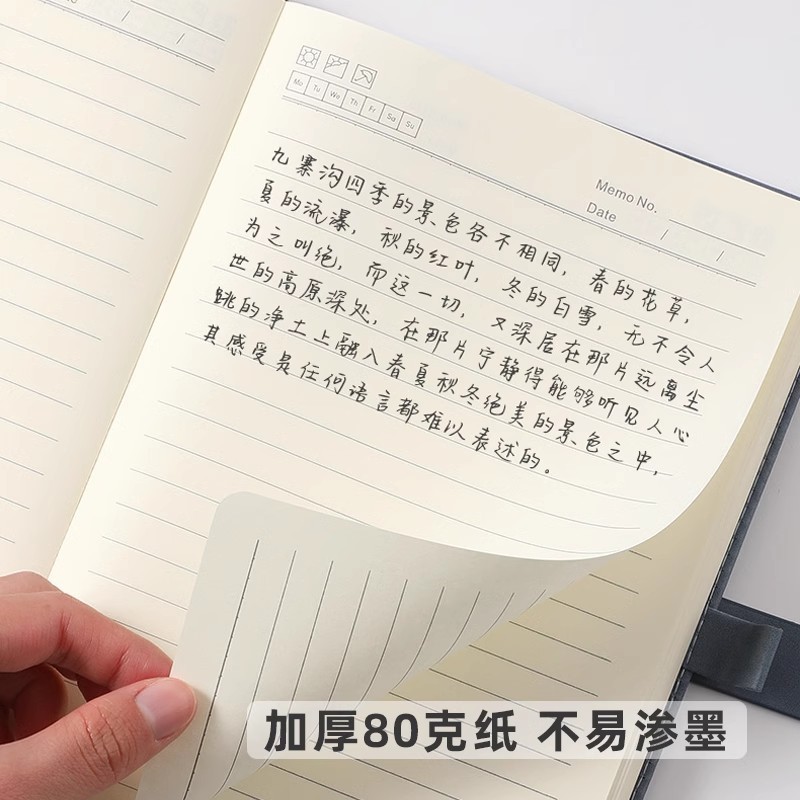 Mo Tu We Th Fr Sa Su
Memo No.
Date / /
九寨沟四季的景色各不相同，春的花草，
夏的流瀑，秋的红叶，冬的白雪，无不令人
为之叫绝，而这一切，又深居在那片远离尘
世的高原深处，在那片宁静得能够听见人心
跳的净土上融入春夏秋冬绝美的景色之中，
其感受是任何语言都难以表述的。
加厚80克纸 不易渗墨